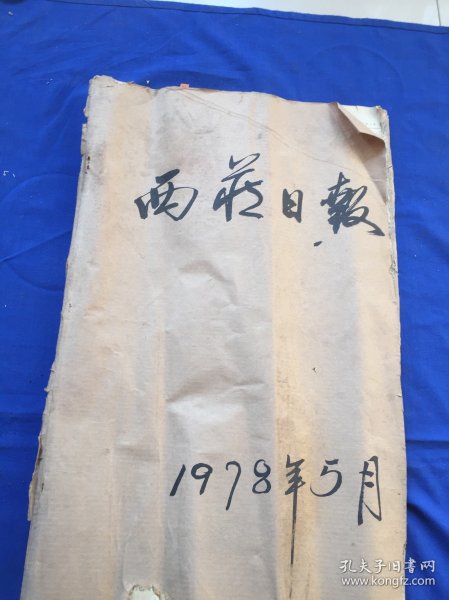 西藏日報
1978年5月
孔夫子旧书网
www.kongfz.com